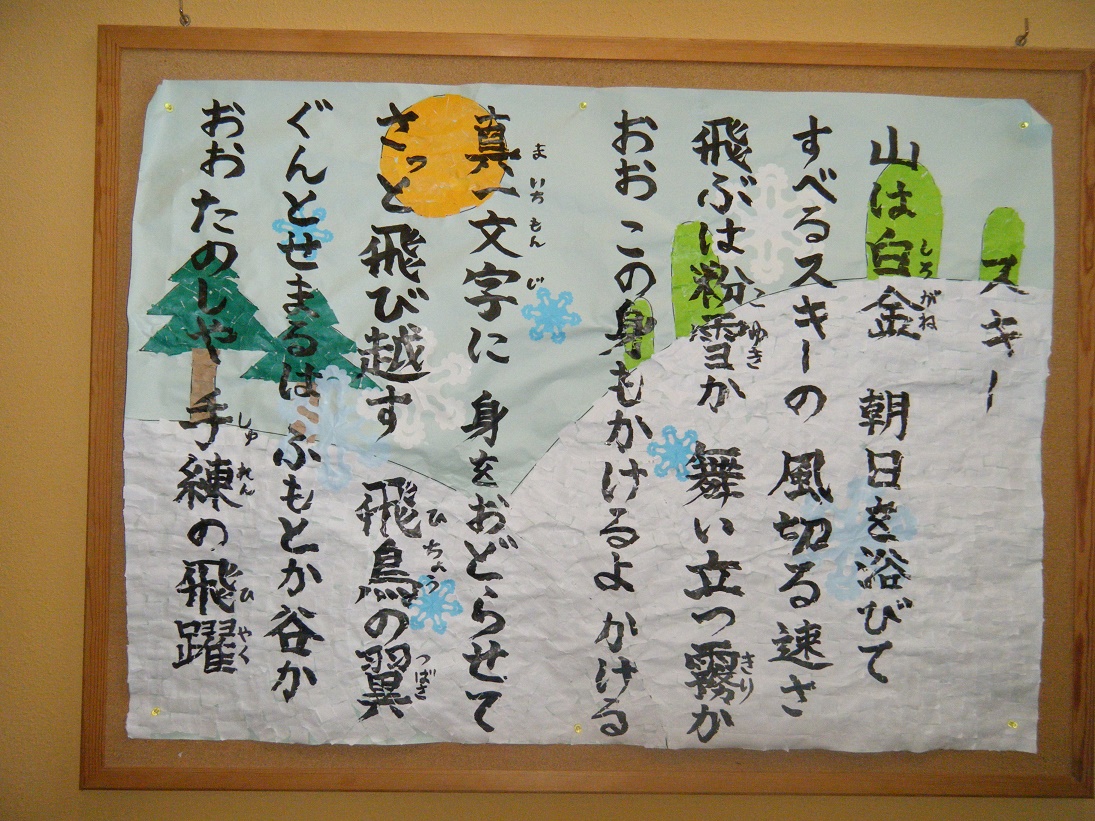 スキー
山は白金 朝日を浴びて
しろ がね
すべるスキーの 風切る速さ
飛ぶは粉雪か 舞い立つ霧か
こ ゆき きり
おお この身もかけるよ かける
真一文字に 身をおどらせて
ま いち もん じ
さっと飛び越す 飛鳥の翼
ひ ちょう つばさ
ぐんとせまるは ふもとか谷か
おお たのしや 手練の飛躍
しゅ れん ひ やく